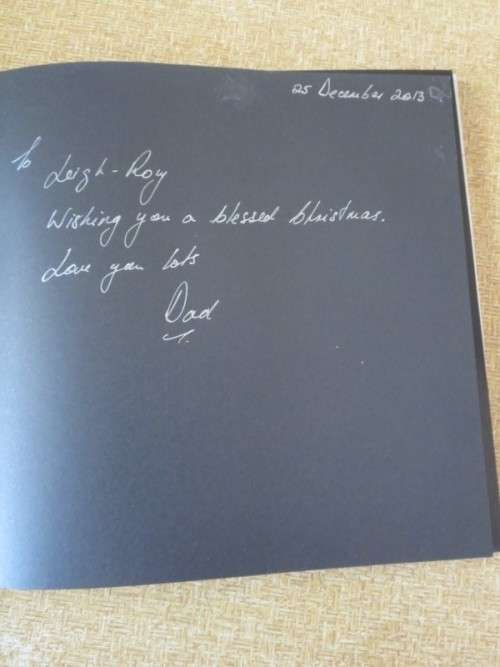 25 December 2013
To
Leigh-Roy
Wishing you a blessed Christmas.
Love you lots
Dad